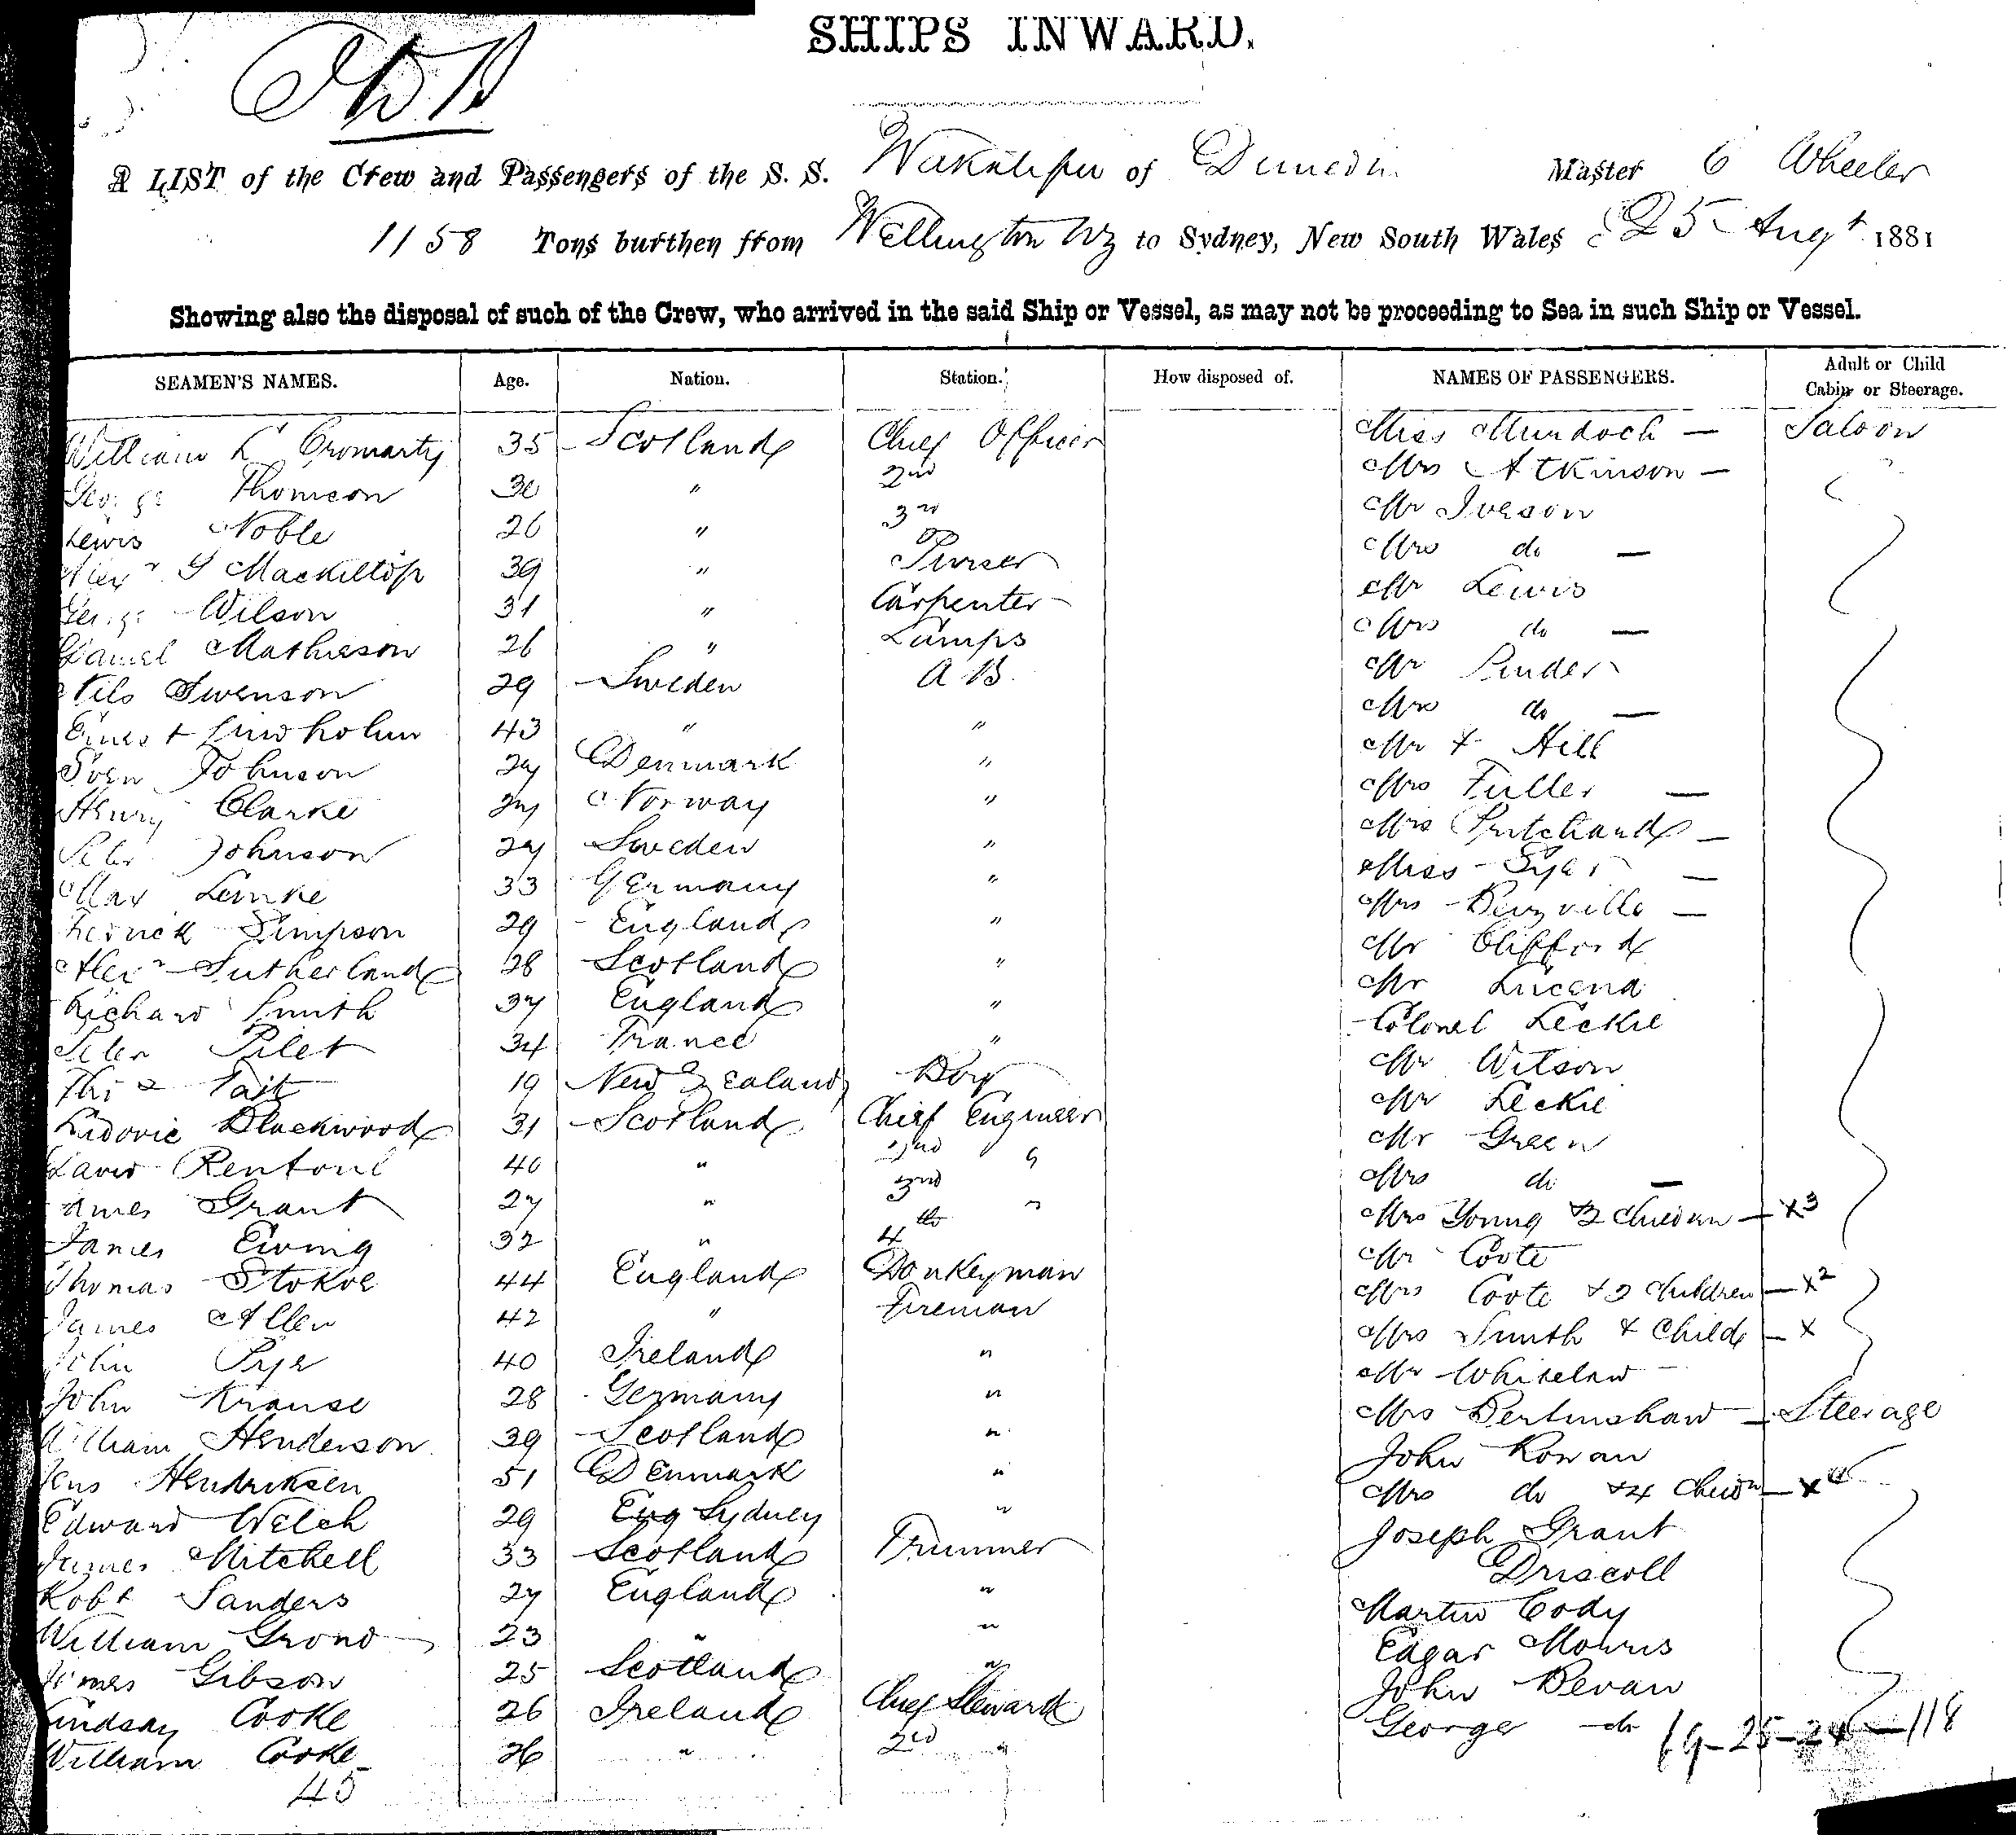 SHIPS INWARD.
A LIST of the Crew and Passengers of the S. S. Wakatipu of Dunedin Master Wheeler
1158 Tons burthen from Wellington NZ to Sydney, New South Wales 25 Augt 1881
Showing also the disposal of such of the Crew, who arrived in the said Ship or Vessel, as may not be proceeding to Sea in such Ship or Vessel.
SEAMEN'S NAMES. Age. Nation. Station. How disposed of. NAMES OF PASSENGERS. Adult or Child Cabin or Steerage.
William Cromarty 35 Scotland Chief Officer Miss Murdoch — Saloon
George Thomson 30 " 2nd Mrs Atkinson —
Lewis Noble 26 " 3rd Mr Iveson
Alexr G Mackillop 39 " Purser Mrs do —
George Wilson 31 " Carpenter Mr Lewis
Daniel Mathieson 26 " Lamps Mrs do —
Nils Swenson 29 Sweden A B. Mr Pinder
Ernest Lindholm 43 " " Mrs do —
Sven Johnson 27 Denmark " Mr Hill
Henry Clarke 27 Norway " Mrs Fuller —
Peter Johnson 27 Sweden " Mrs Pritchard —
Max Lemke 33 Germany " Miss —
Simpson 29 England " Mrs —
Alexr Sutherland 28 Scotland " Mr Clifford
Richard Smith 37 England " Mr Lucena
Peter Pilet 34 France " Colonel Leckie
Thos Tait 19 New Zealand Boy Mr Wilson
Ludovic Blackwood 31 Scotland Chief Engineer Mr Leckie
David Rentoul 40 " 2nd " Mr Green
James Grant 27 " 3rd " Mrs do —
James Ewing 32 " 4th Mrs Young & 3 children — x3
Thomas Stokoe 44 England Donkeyman Mr Coote
James Allen 42 " Fireman Mrs Coote & 2 children — x2
John Pye 40 Ireland " Mrs Smith & Child — x
John Krause 28 Germany " Mr Whitelaw
William Henderson 39 Scotland " Mrs Bertinshaw — Steerage
Jens Hendriksen 51 Denmark " John Rowan
Edward Welch 29 Eng Sydney " Mrs do & 4 — x4
James Mitchell 33 Scotland Trimmer Joseph Grant
Robt Sanders 27 England " Driscoll
William Grono 23 " " Martin Cody
James Gibson 25 Scotland " Edgar Morris
Lindsay Cooke 26 Ireland Chief Steward John Bevan
William Cooke 26 " 2nd " George do 69-25-24-118
45